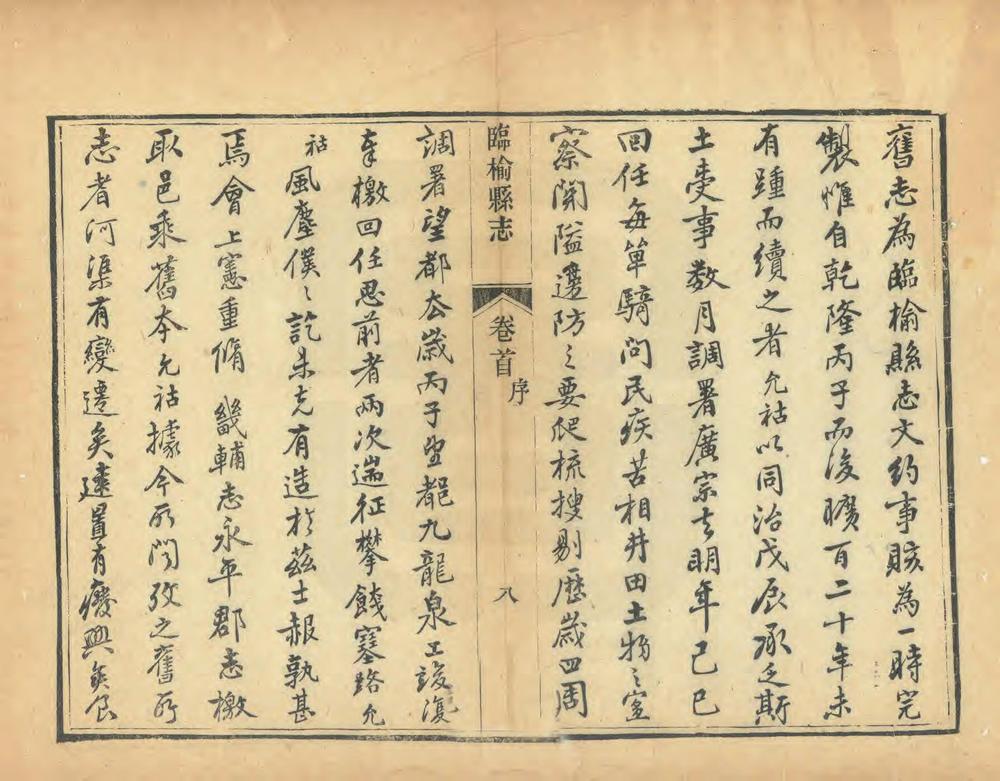 舊志為臨榆縣志文約事賅為一時完
製惟自乾隆丙子而後曠百二十年未
有踵而續之者允祜以同治戊辰承乏斯
土受事數月調署廣宗去明年己巳
回任每單騎問民疾苦相井田土物之宜
察關隘邊防之要爬梳搜剔歷歲四周
臨榆縣志
卷首
序
八
調署望都去歲丙子望都九龍泉工竣復
奉檄回任思前者兩次遄征攀餞塞路允
祜風塵僕〻訖未克有造於茲土赧孰甚
焉會上憲重脩 畿輔志永平郡志檄
取邑乘舊本允祜據今所聞攷之舊所
志者河渠有變遷矣建置有廢興矣食